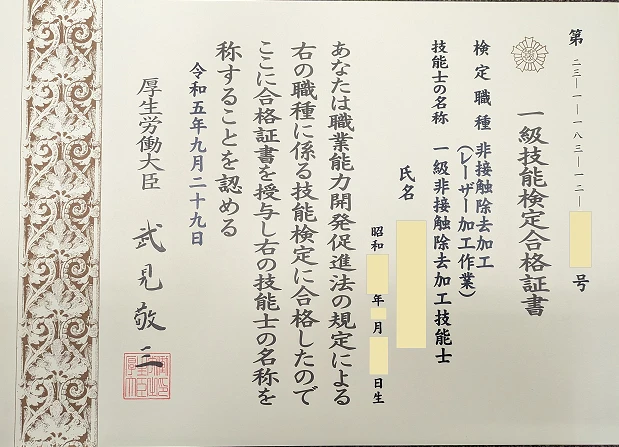 第 二三―一―一八三―一二― 号
一級技能検定合格証書
検定職種 非接触除去加工
(レーザー加工作業)
技能士の名称 一級非接触除去加工技能士
氏名
昭和 年 月 日生
あなたは職業能力開発促進法の規定による
右の職種に係る技能検定に合格したので
ここに合格証書を授与し右の技能士の名称を
称することを認める
令和五年九月二十九日
厚生労働大臣 武見敬三